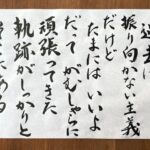 過去は
振り向かない主義
だけど
たまにはいいよ
だってがむしゃらに
頑張ってきた
軌跡がしっかりと